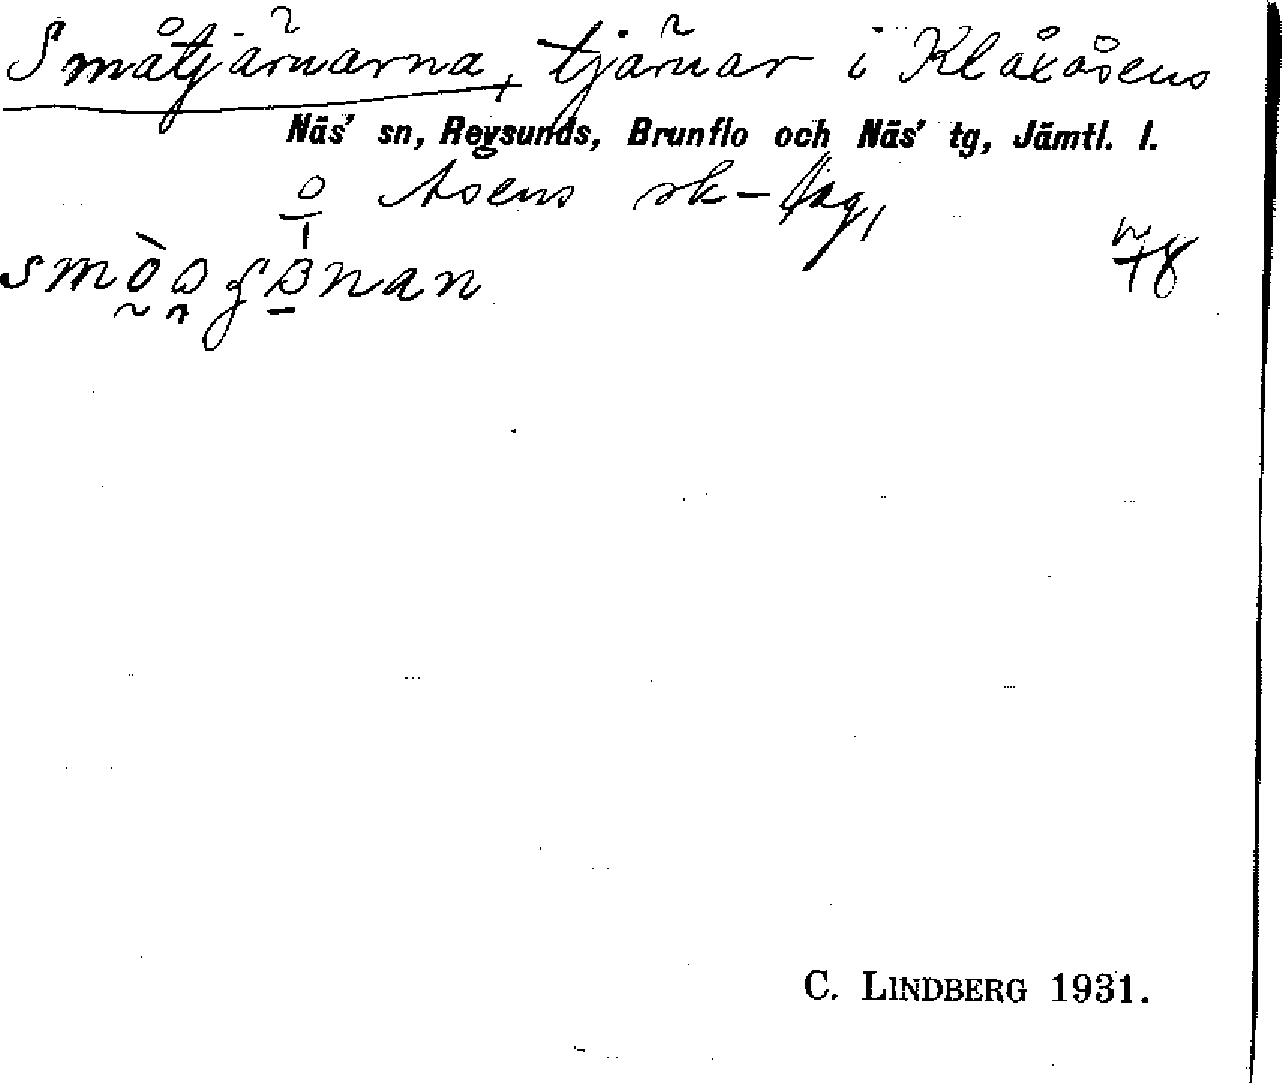 Småtjärnarna, tjärnar i Kläxåsens
Näs' sn, Revsunds, Brunflo och Näs' tg, Jämtl. l.
o Åsens sk-lag,
C. LINDBERG 1931.